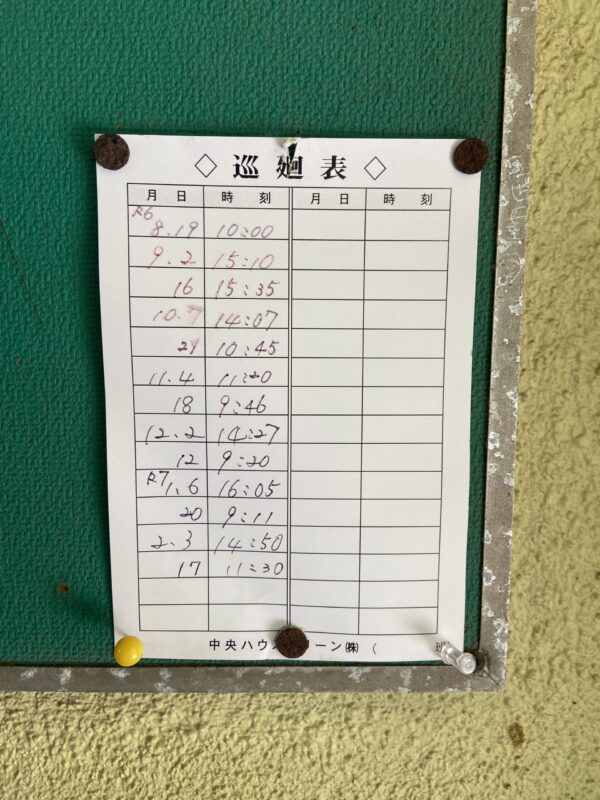 ◇ 巡廻表 ◇
月 日 時 刻 月 日 時 刻
R6
8.19 10:00
9.2 15:10
16 15:35
10.7 14:07
21 10:45
11.4 11:20
18 9:46
12.2 14:27
12 9:20
R7 1.6 16:05
20 9:11
2.3 14:50
17 11:30
中央ハウス ーン㈱ (